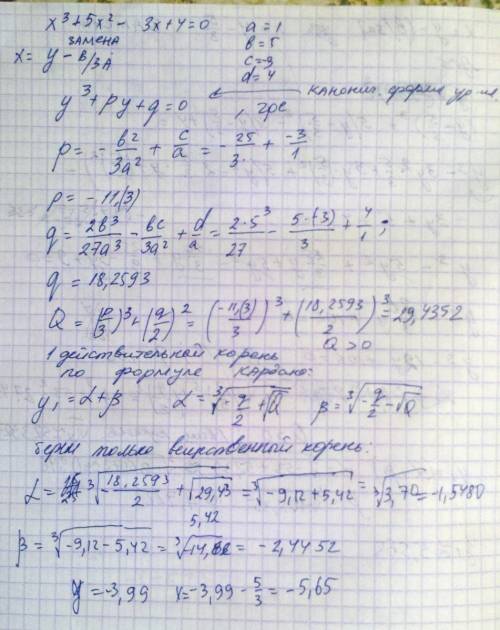 x³ + 5x² - 3x + 4 = 0   a = 1
замена   в = 5
x = y - в/3а   c = -3
d = 4
y³ + py + q = 0 ← канонич. форма ур-ия
, где
p = - в²/3a² + c/a = - 25/3 + -3/1
p = - 11,(3)
q = 2в³/27a³ - вc/3a² + d/a = 2·5³/27 - 5·(-3)/3 + 4/1 ;
q = 18,2593
Q = (p/3)³ + (q/2)² = (-11,(3)/3)³ + (18,2593/2)³ = 29,4352
Q > 0
1 действительный корень
по формуле Кардано:
y₁ = α + β   α = ∛(-q/2 + √Q)   β = ∛(-q/2 - √Q)
берем только вещественный корень:
α = ∛(-18,2593/2 + √29,43) = ∛(-9,12 + 5,42) = ∛3,70 = -1,5480
5,42
β = ∛(-9,12 - 5,42) = = -2,4452
y = -3,99   x = -3,99 - 5/3 = -5,65